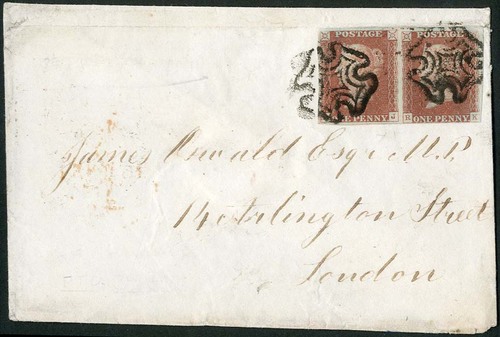 POSTAGE POSTAGE
PENNY J R ONE PENNY K
James Oswald Esqr M.P.
14 Arlington Street
London